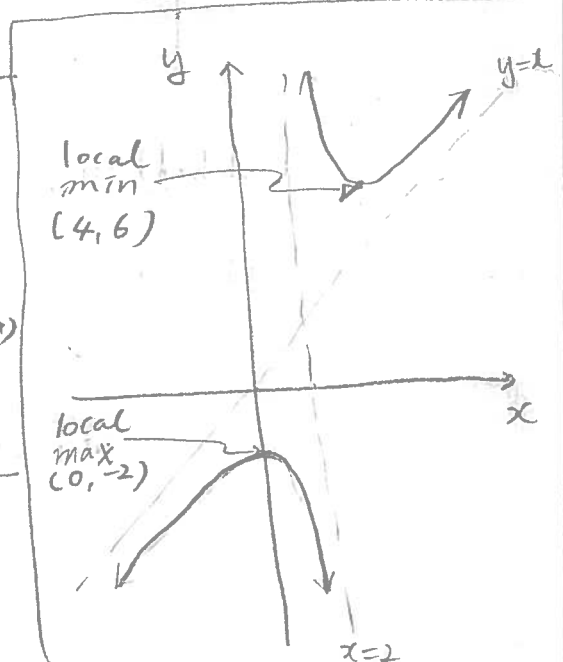 y
y=x
local
min
(4, 6)
x
local
max
(0, -2)
x=2